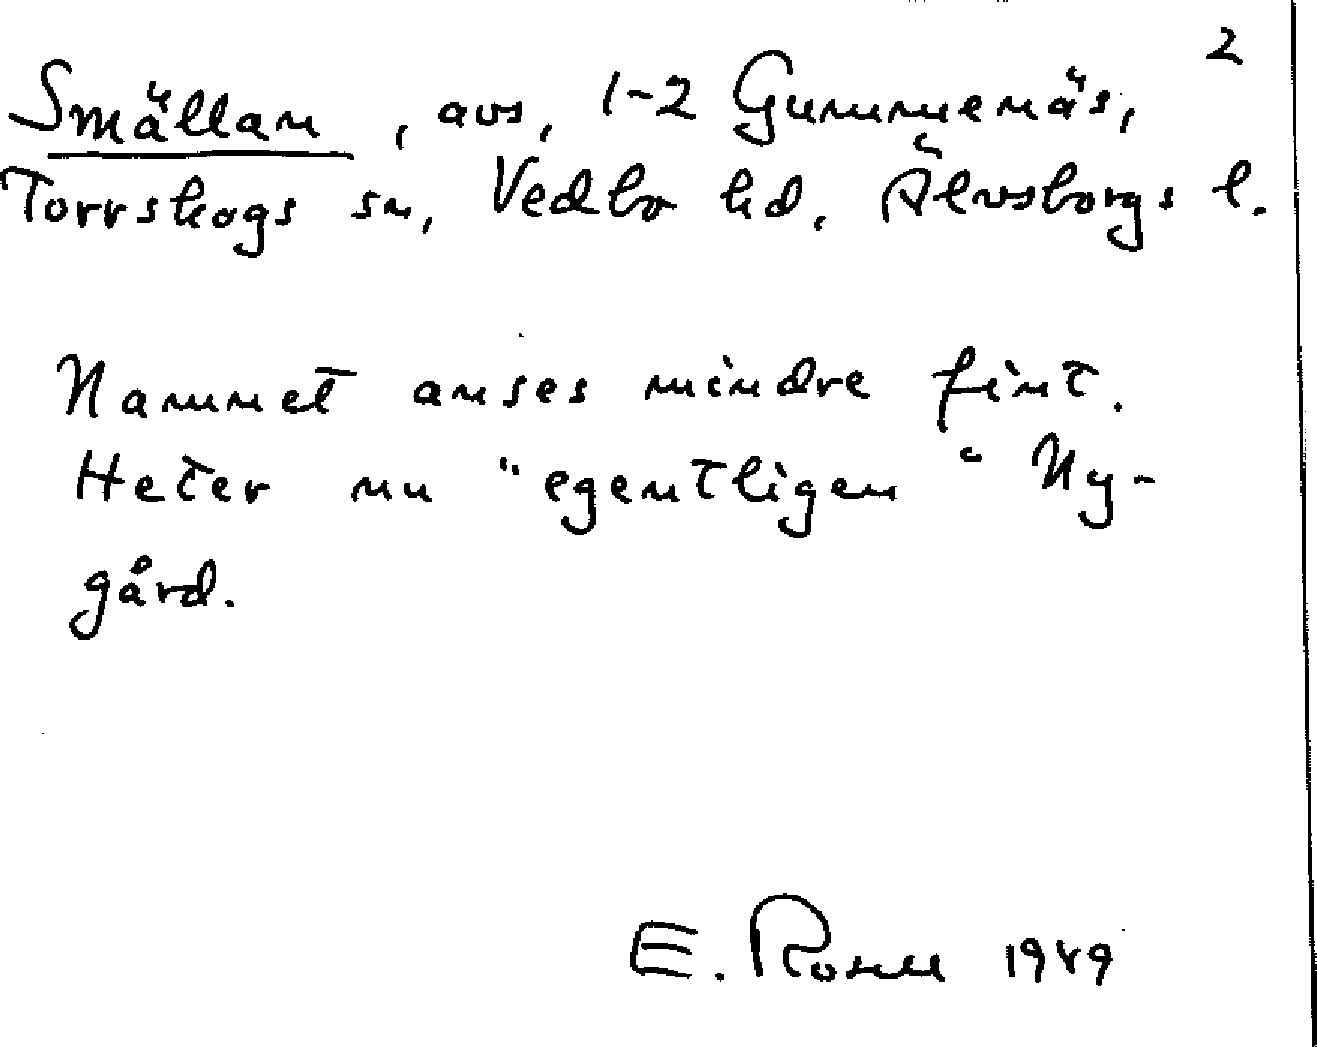 2
Smällan, avs, 1-2 Gummenäs,
Torrskogs sn, Vedbo hd, Älvsborgs l.
Namnet anses mindre fint.
Heter nu "egentligen" Ny-
gård.
E. 1949